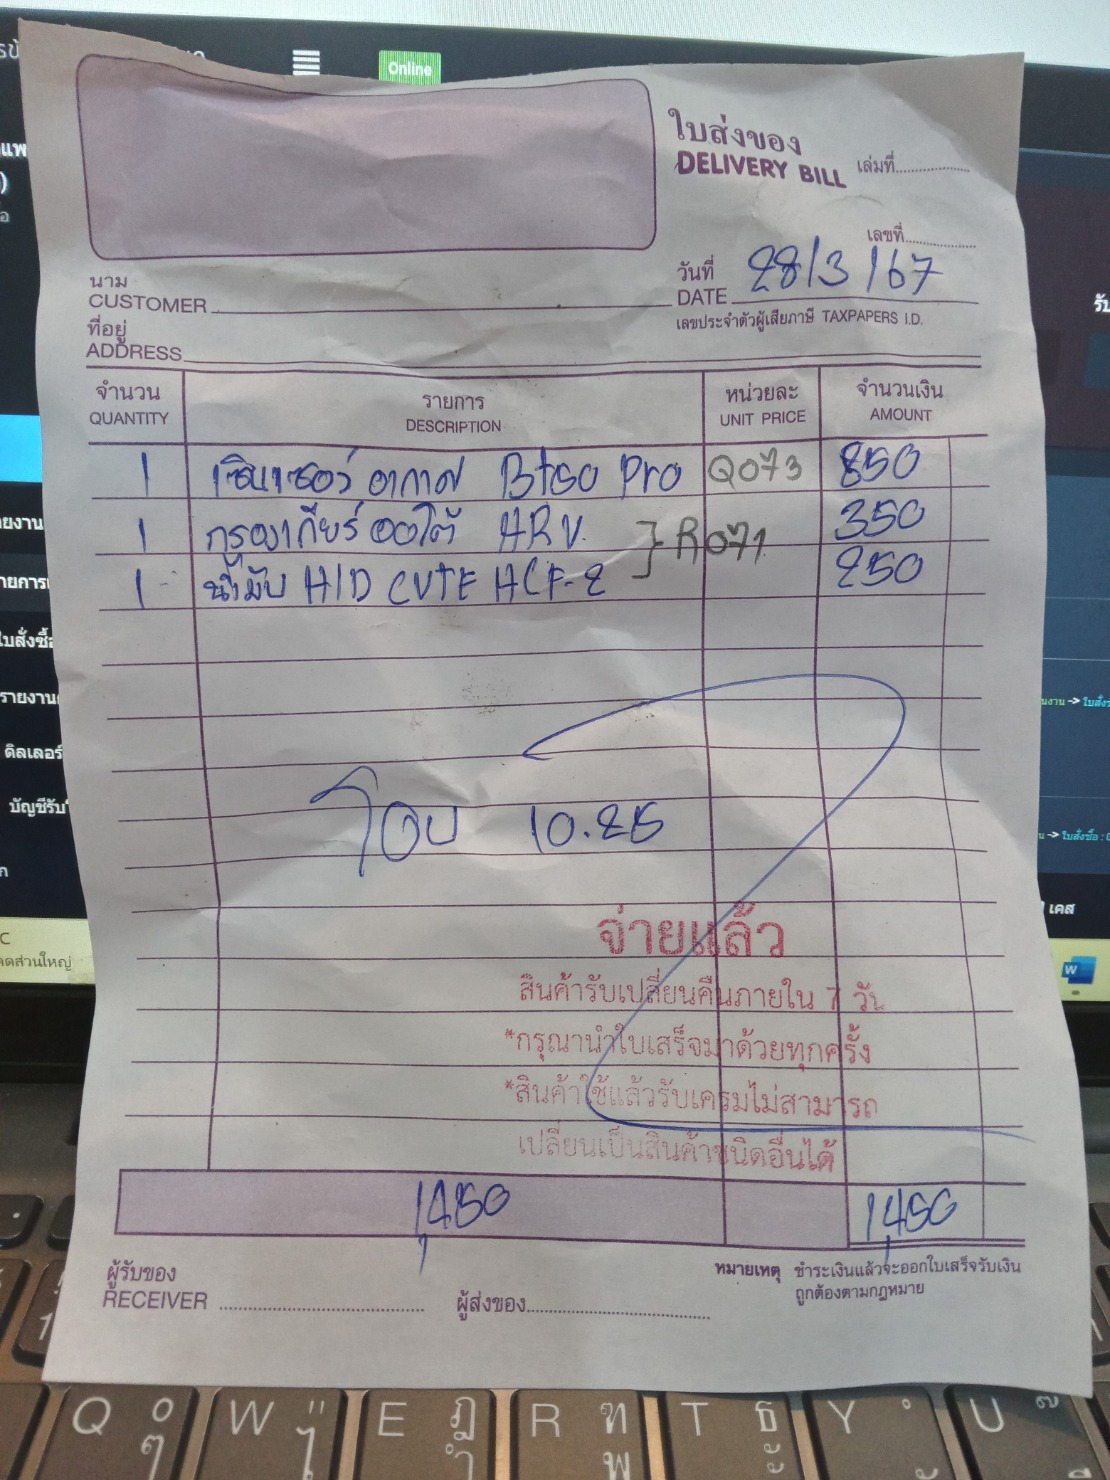 Online
ใบส่งของ
DELIVERY BILL
เล่มที่
เลขที่
วันที่
DATE 28/3/67
นาม
CUSTOMER
เลขประจำตัวผู้เสียภาษี TAXPAPERS I.D.
ที่อยู่
ADDRESS
จำนวน รายการ หน่วยละ จำนวนเงิน
QUANTITY DESCRIPTION UNIT PRICE AMOUNT
1 เซ็นเซอร์ อากาศ Bt50 Pro Q073 850
1 กรองเกียร์ ออโต้ HRV. 350
R071
1 น้ำมัน H/D CVTF HCF-2 250
โอน 10.25
จ่ายแล้ว
สินค้ารับเปลี่ยนคืนภายใน 7 วัน
*กรุณานำใบเสร็จมาด้วยทุกครั้ง
*สินค้าใช้แล้วรับเครมไม่สามารถ
เปลี่ยนเป็นสินค้าชนิดอื่นได้
1,450 1,450
ผู้รับของ
RECEIVER
ผู้ส่งของ
หมายเหตุ ชำระเงินแล้วจะออกใบเสร็จรับเงิน
ถูกต้องตามกฎหมาย
ใบสั่งซื้อ
บัญชีรับ
ดิลเลอร์
เคส
W
Q W E R T Y U